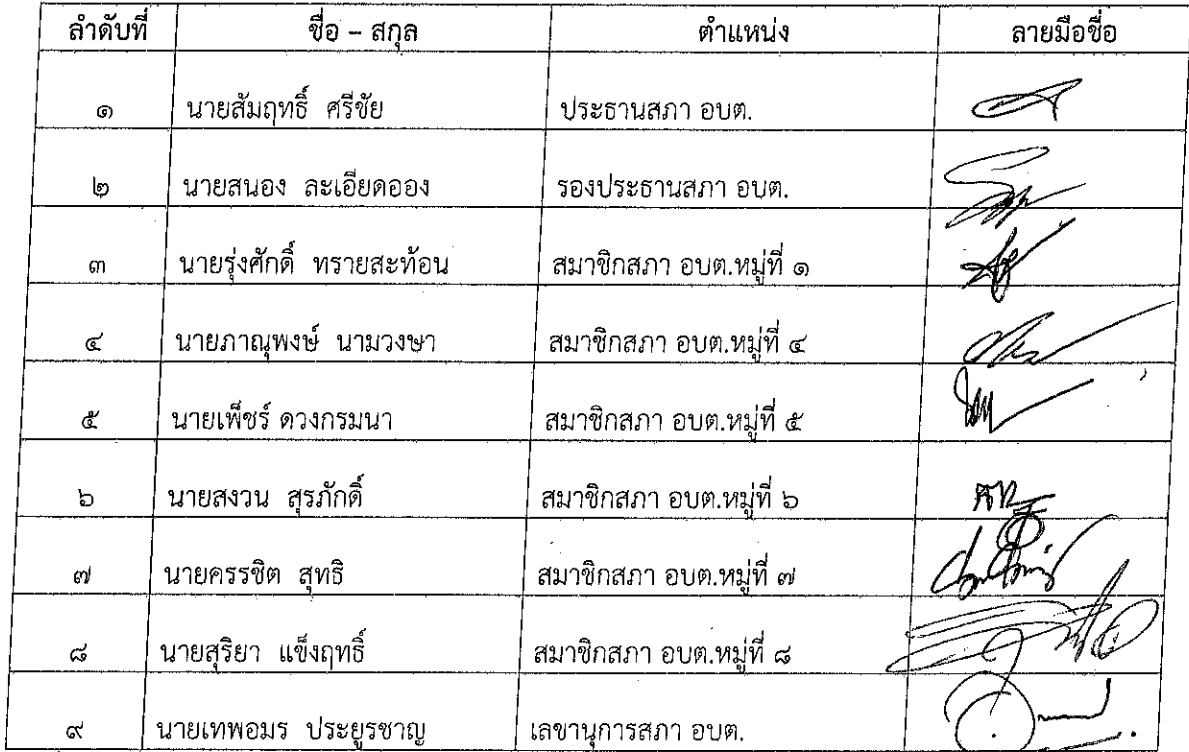 ลำดับที่ ชื่อ – สกุล ตำแหน่ง ลายมือชื่อ
๑ นายสัมฤทธิ์ ศรีชัย ประธานสภา อบต.
๒ นายสนอง ละเอียดออง รองประธานสภา อบต.
๓ นายรุ่งศักดิ์ ทรายสะท้อน สมาชิกสภา อบต.หมู่ที่ ๑
๔ นายภาณุพงษ์ นามวงษา สมาชิกสภา อบต.หมู่ที่ ๔
๕ นายเพ็ชร์ ดวงกรมนา สมาชิกสภา อบต.หมู่ที่ ๕
๖ นายสงวน สุรภักดิ์ สมาชิกสภา อบต.หมู่ที่ ๖
๗ นายครรชิต สุทธิ สมาชิกสภา อบต.หมู่ที่ ๗
๘ นายสุริยา แข็งฤทธิ์ สมาชิกสภา อบต.หมู่ที่ ๘
๙ นายเทพอมร ประยูรชาญ เลขานุการสภา อบต.